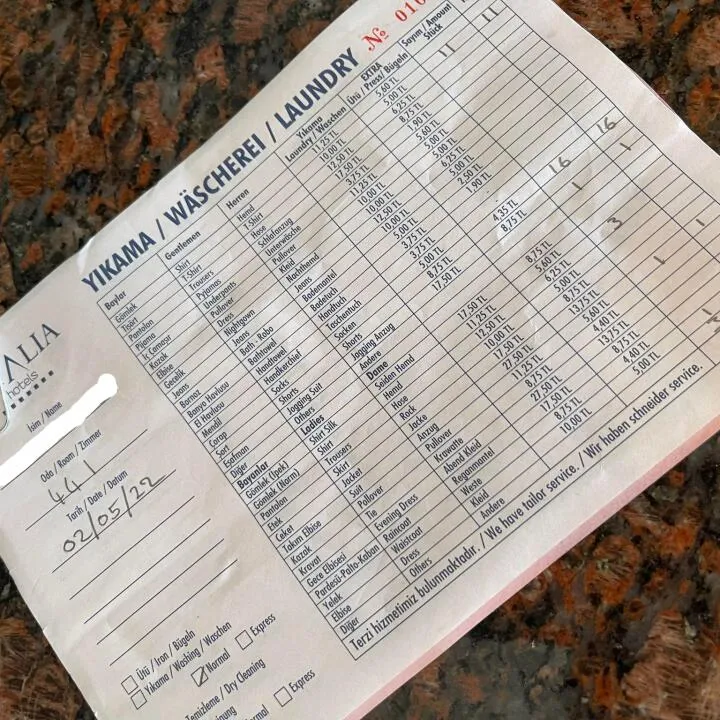 YIKAMA / WÄSCHEREI / LAUNDRY № 016
ALIA
hotels
İsim / Name
Oda / Room / Zimmer
441
Tarih / Date / Datum
02/05/22
Ütü / Iron / Bügeln
Yıkama / Washing / Waschen
Normal Express
Temizleme / Dry Cleaning
Express
Baylar Gentlemen Herren Yıkama Laundry / Waschen EXTRA Ütü / Press / Bügeln Sayım / Amount Stück
Gömlek Shirt Hemd 11,25 TL 5,60 TL 11 11
Tişört T-Shirt T-Shirt 10,00 TL 5,00 TL
Pantolon Trousers Hose 12,50 TL 6,25 TL
Pijama Pyjamas Schlafanzug 17,50 TL 8,75 TL
İç Çamaşır Underpants Unterwäsche 3,75 TL 1,90 TL 16 16
Kazak Pullover Pullover 11,25 TL 5,60 TL 1 1
Elbise Dress Kleid 10,00 TL 5,00 TL
Gecelik Nightgown Nachthemd 10,00 TL 5,00 TL 3
Jeans Jeans Jeans 12,50 TL 6,25 TL
Bornoz Bath - Robe Bademantel 10,00 TL 5,00 TL 1
Banyo Havlusu Bathtowel Badetuch 5,00 TL 2,50 TL
El Havlusu Handtowel Handtuch 3,75 TL 1,90 TL
Mendil Handkerchief Taschentuch 3,75 TL
Çorap Socks Socken 5,00 TL
Şort Shorts Shorts 8,75 TL 4,35 TL
Eşofman Jogging Suit Jogging Anzug 17,50 TL 8,75 TL
Diğer Others Andere
Bayanlar Ladies Dame
Gömlek (İpek) Shirt Silk Seiden Hemd 17,50 TL 8,75 TL
Gömlek (Norm) Shirt Hemd 11,25 TL 5,60 TL
Pantolon Trousers Hose 12,50 TL 6,25 TL
Etek Skirt Rock 10,00 TL 5,00 TL
Ceket Jacket Jacke 17,50 TL 8,75 TL
Takım Elbise Suit Anzug 27,50 TL 13,75 TL
Kazak Pullover Pullover 11,25 TL 5,60 TL
Kravat Tie Krawatte 8,75 TL 4,40 TL
Gece Elbisesi Evening Dress Abend Kleid 27,50 TL 13,75 TL
Pardesü-Palto-Kaban Raincoat Reganmantel 17,50 TL 8,75 TL
Yelek Waistcoat Weste 8,75 TL 4,40 TL
Elbise Dress Kleid 10,00 TL 5,00 TL
Diğer Others Andere
Terzi hizmetimiz bulunmaktadır. / We have tailor service. / Wir haben schneider service.